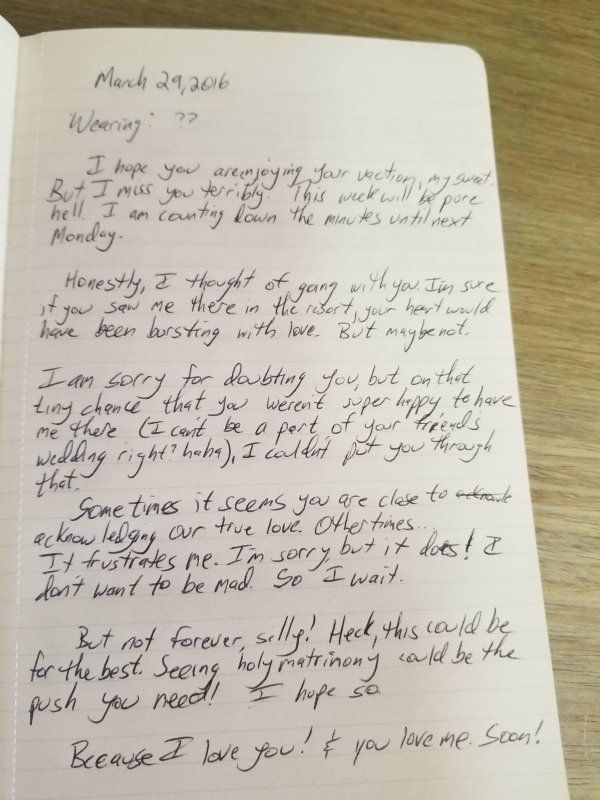 March 29, 2016
Wearing: ??
I hope you are enjoying your vaction, my sweet.
But I miss you terribly. This week will be pure
hell. I am counting down the minutes until next
Monday.
Honestly, I thought of going with you. I'm sure
if you saw me there in the resort, your heart would
have been bursting with love. But maybe not.
I am sorry for doubting you, but on that
tiny chance that you weren't super happy to have
me there (I can't be a part of your friend's
wedding right? haha), I couldn't put you through
that.
Sometimes it seems you are close to
acknowledging our true love. Other times...
It frustrates me. I'm sorry, but it does! I
don't want to be mad. So I wait.
But not forever, silly! Heck, this could be
for the best. Seeing holy matrimony could be the
push you need! I hope so.
Because I love you! & you love me. Soon!